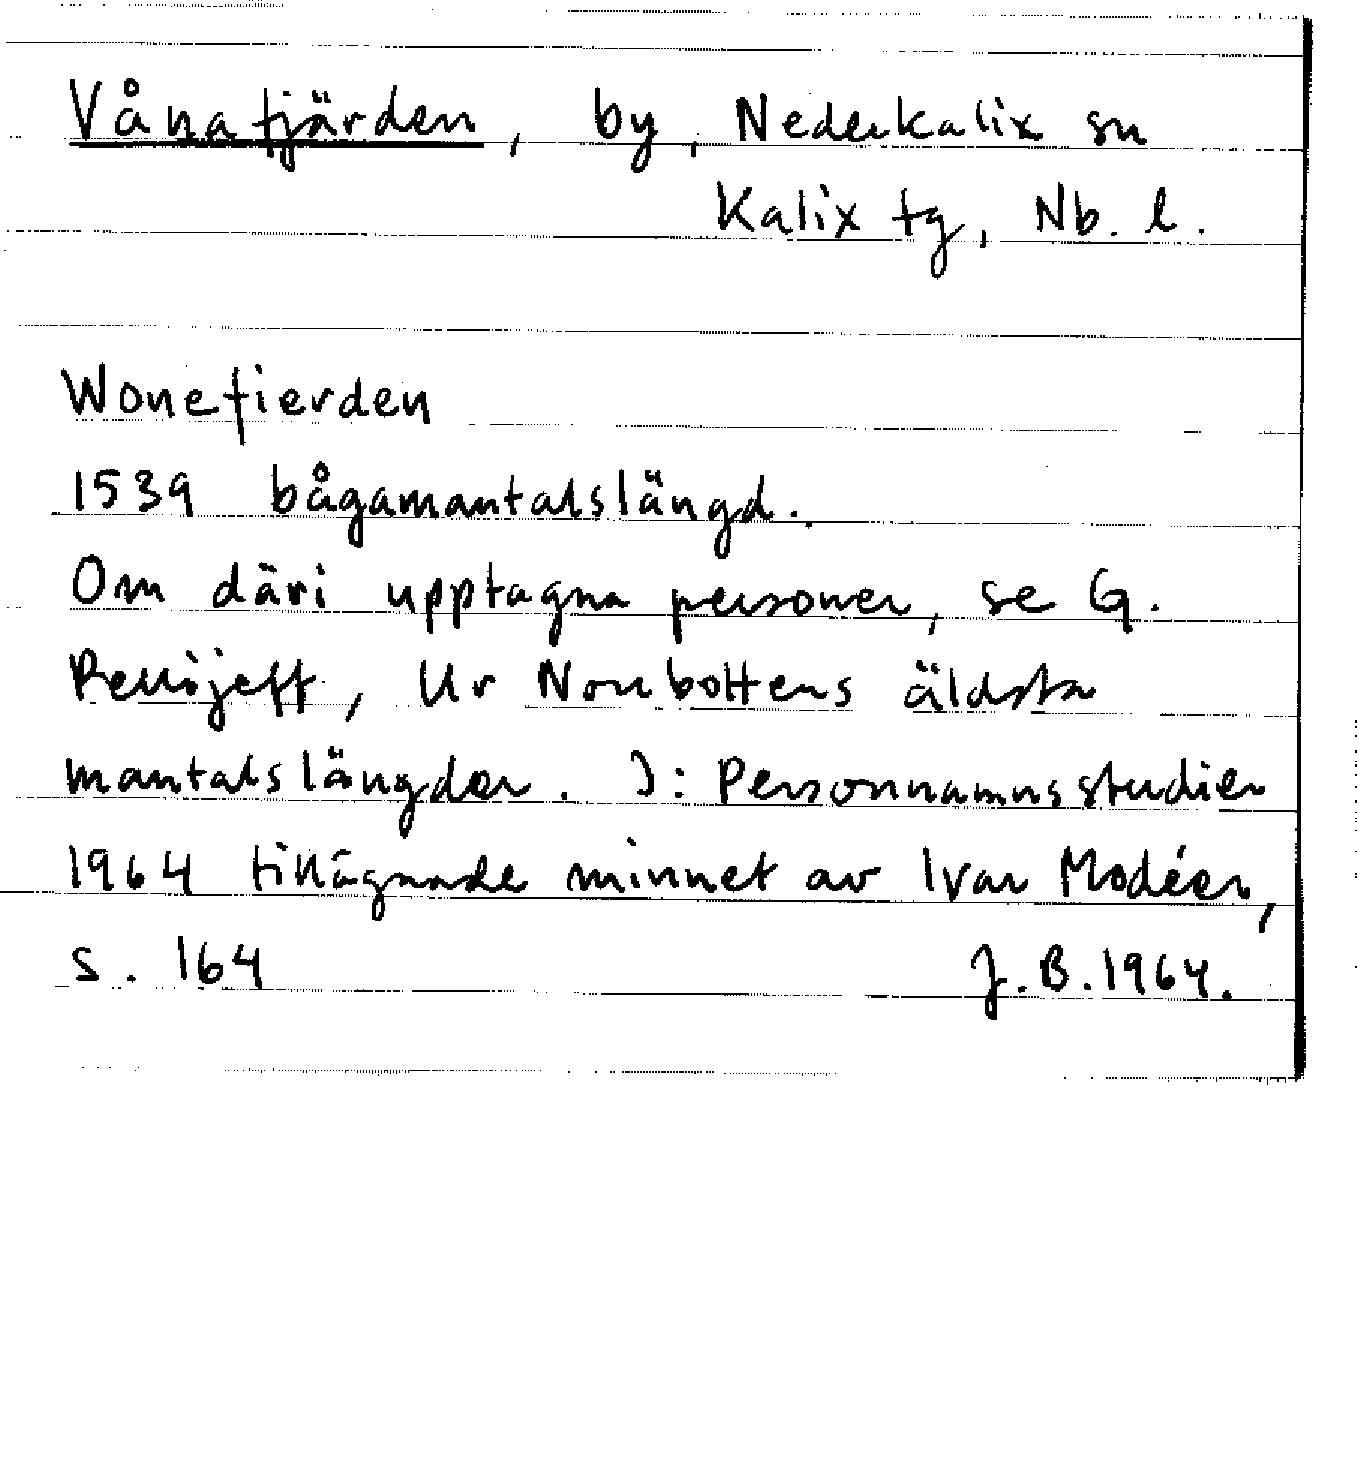 Vånafjärden, by, Nederkalix sn
Kalix tg, Nb. l.
Wonefierden
1539 bågamantalslängd.
Om däri upptagna personer, se G.
Pellijeff, Ur Norrbottens äldsta
mantalslängder. I: Personnamnsstudier
1964 tillägnade minnet av Ivar Modéer,
s. 164 J.B.1964.